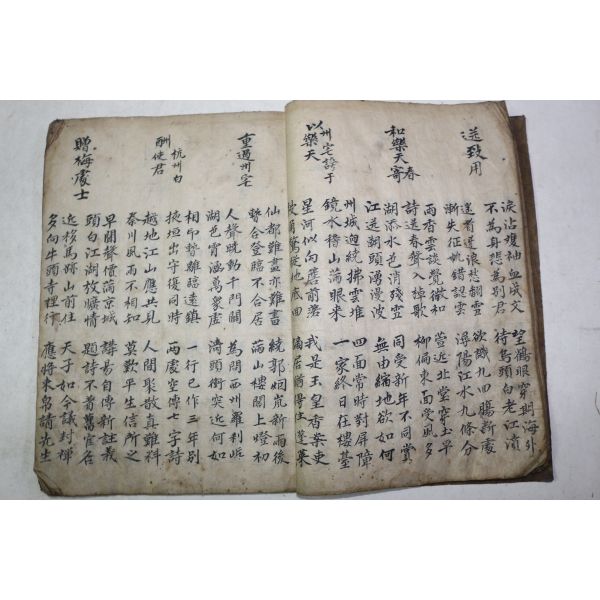 送致用
淚沾雙袖血成文 望鶴眼穿期海外
不為身悲為別君 待烏頭白老江濆
遙看逆浪愁翻雪 欲識九回腸斷處
漸失征帆錯認雲 潯陽江水九條分
和樂天春寄
雨香雲淡覺微和 萱近北堂穿土早
詩送春聲入棹歌 柳偏東面受風多
湖添水色消殘雪 同受新年不同賞
江送潮頭湧漫波 無由縮地欲如何
以州宅誇于樂天
州城迥繞拂雲堆 四面常時對屏障
鏡水稽山滿眼來 一家終日在樓臺
星河似向簷前落 我是玉皇香案吏
鼓角驚從地底回 謫居猶得住蓬萊
重過州宅
仙都難畫亦難書 繞郭烟嵐新雨後
暫合登臨不合居 滿山樓閣上燈初
人聲曉動千門闢 為問西州羅刹岸
湖色宵涵萬象虛 濤頭衝突近何如
酬杭州白使君
相印暫離臨遠鎮 一行已作三年別
掖垣出守復同時 兩處空傳七字詩
越地江山應共見 人間聚散真難料
秦川風雨不相知 莫歎平生信所之
贈梅處士
早聞聲價滿京城 講易自傳新註義
頭白江湖放曠情 題詩不著舊官名
近移馬跡山前住 天子如今議封禪
多向牛頭寺裡行 應將束帛請先生